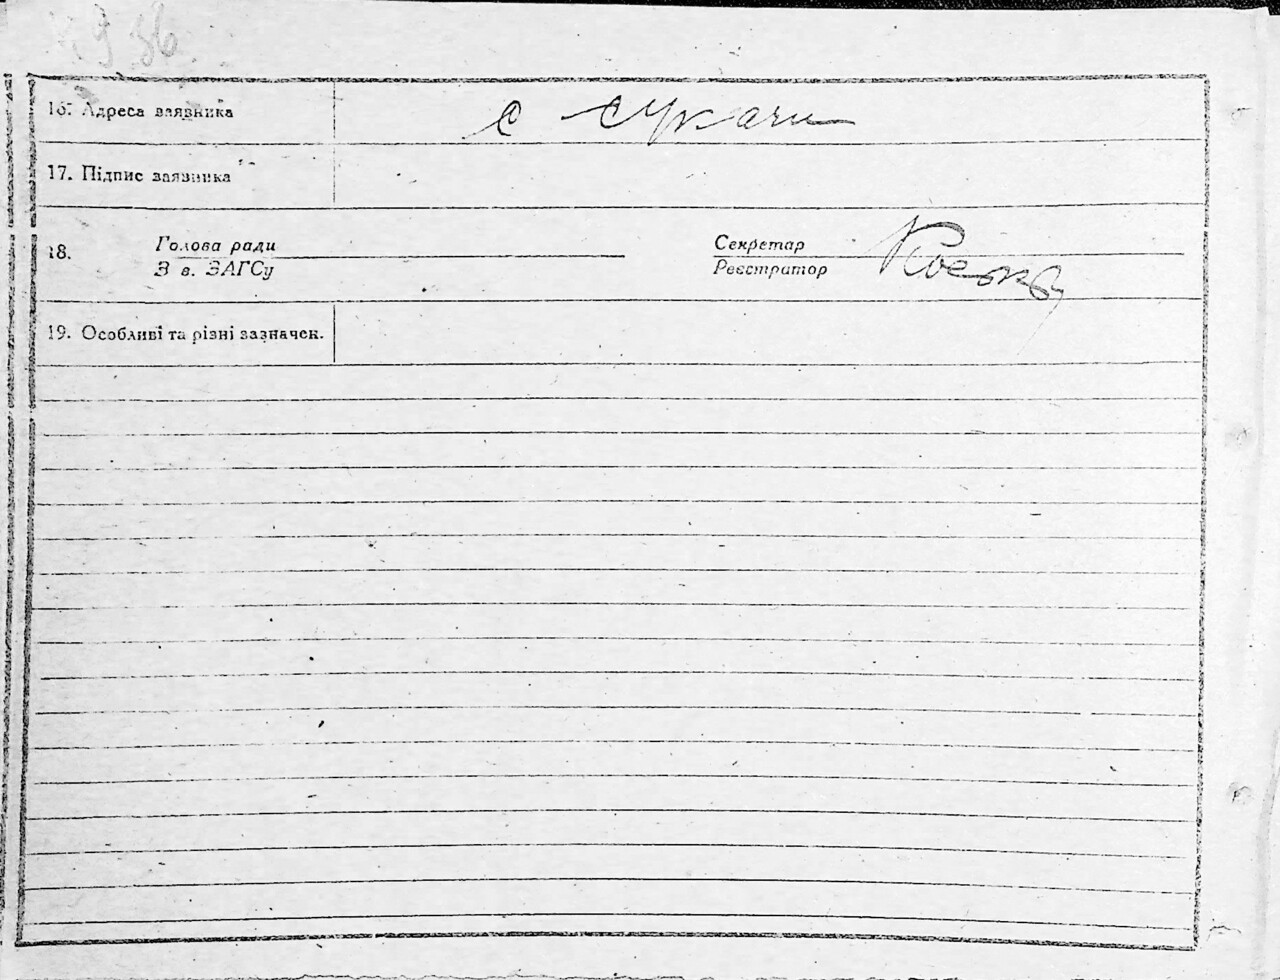 16. Адреса заявника с Сукачи
17. Підпис заявника
18. Голова ради Секретар
З в. ЗАГСу Реєстратор
19. Особливі та різні зазначек.